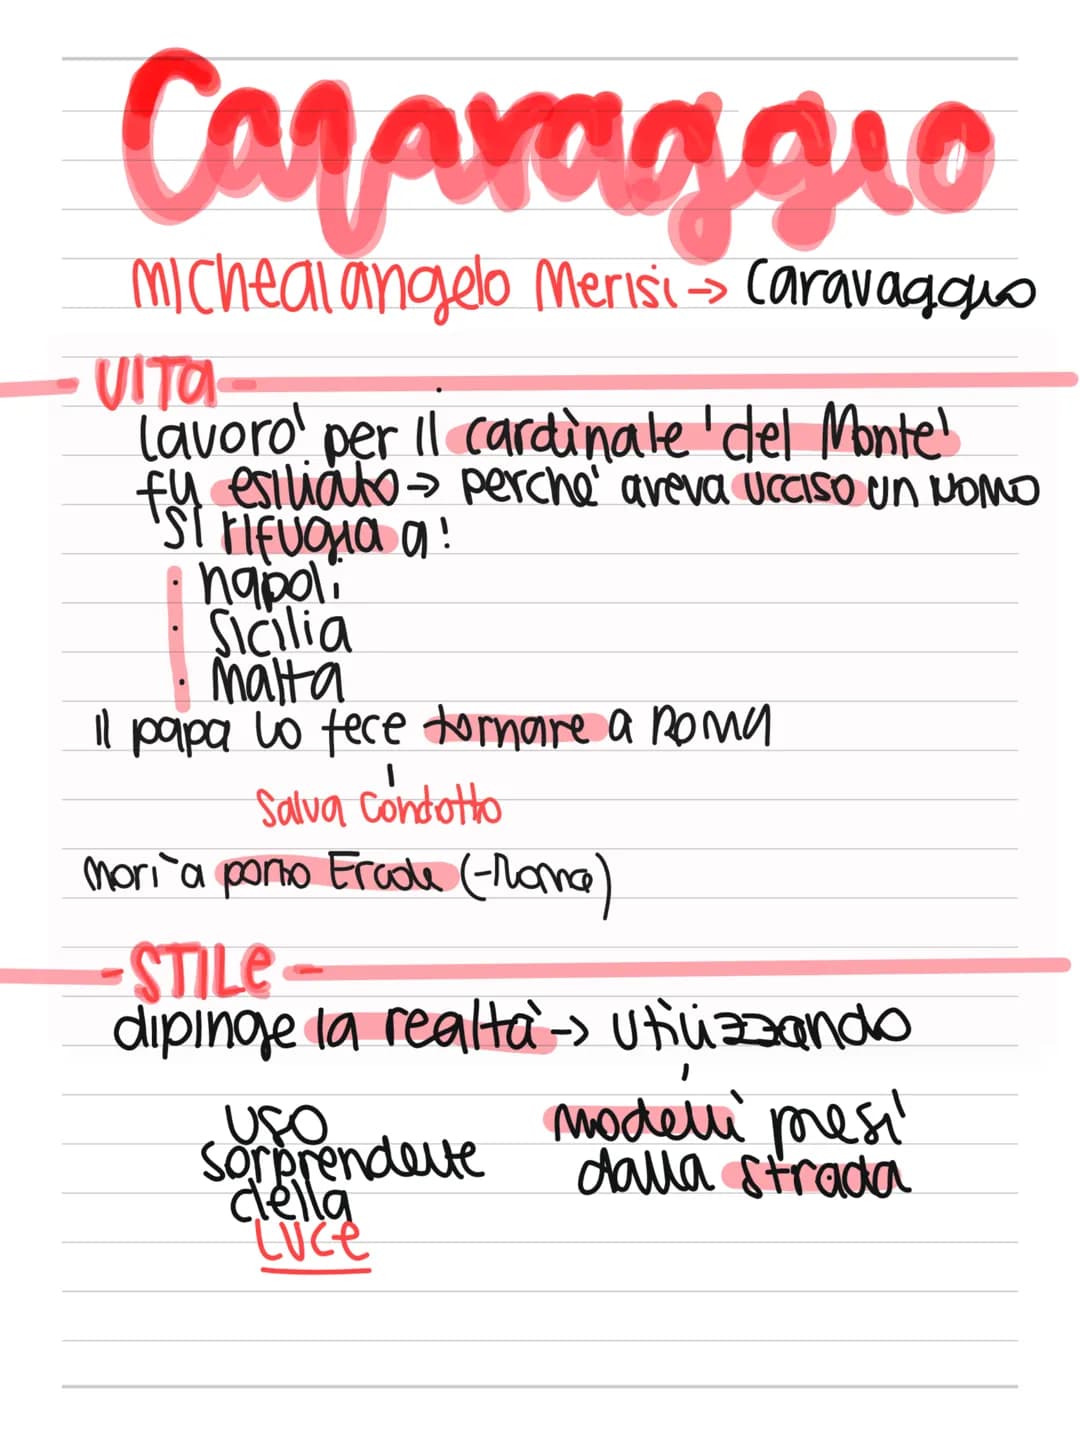 Caravaggio
Michealangelo Merisi → Caravaggio
- VITA -
lavorò per il cardinale 'del Monte'
fu esiliato → perchè aveva ucciso un uomo
si rifugia a:
· napoli
· Sicilia
· Malta
Il papa lo fece tornare a Roma
Salva Condotto
Morì a porto Ercole (-Roma)
- STILE -
dipinge la realtà → utilizzando
uso
sorprendente
della
LUCE
modelli presi
dalla strada